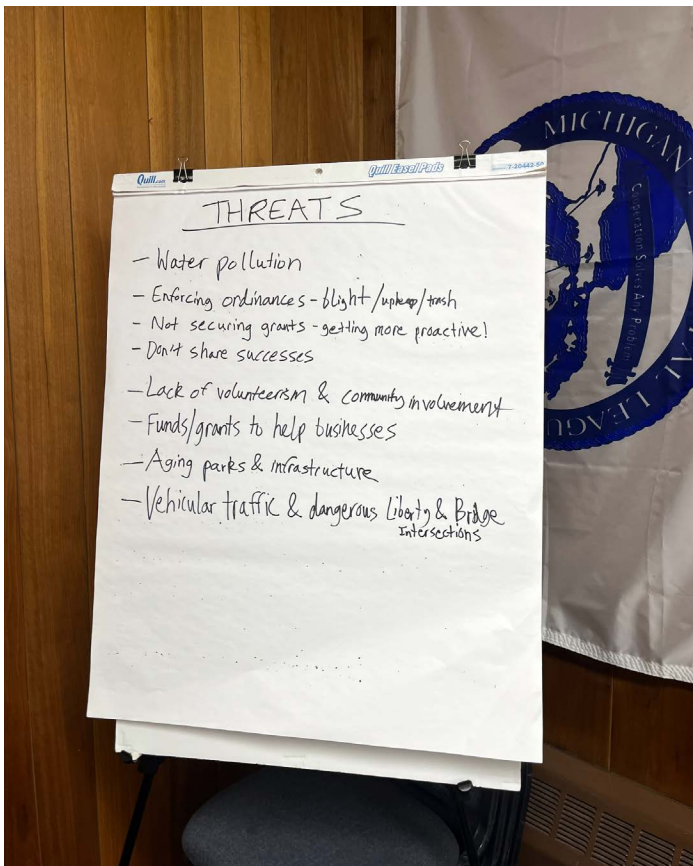 Quill.com
Quill Easel Pads
7-20442-SP
THREATS
- Water pollution
- Enforcing ordinances - blight/upkeep/trash
- Not securing grants - getting more proactive!
- Don't share successes
- Lack of volunteerism & community involvement
- Funds/grants to help businesses
- Aging parks & infrastructure
- Vehicular traffic & dangerous Liberty & Bridge
Intersections
MICHIGAN
Cooperation Solves Any Problem
AL LEAGU